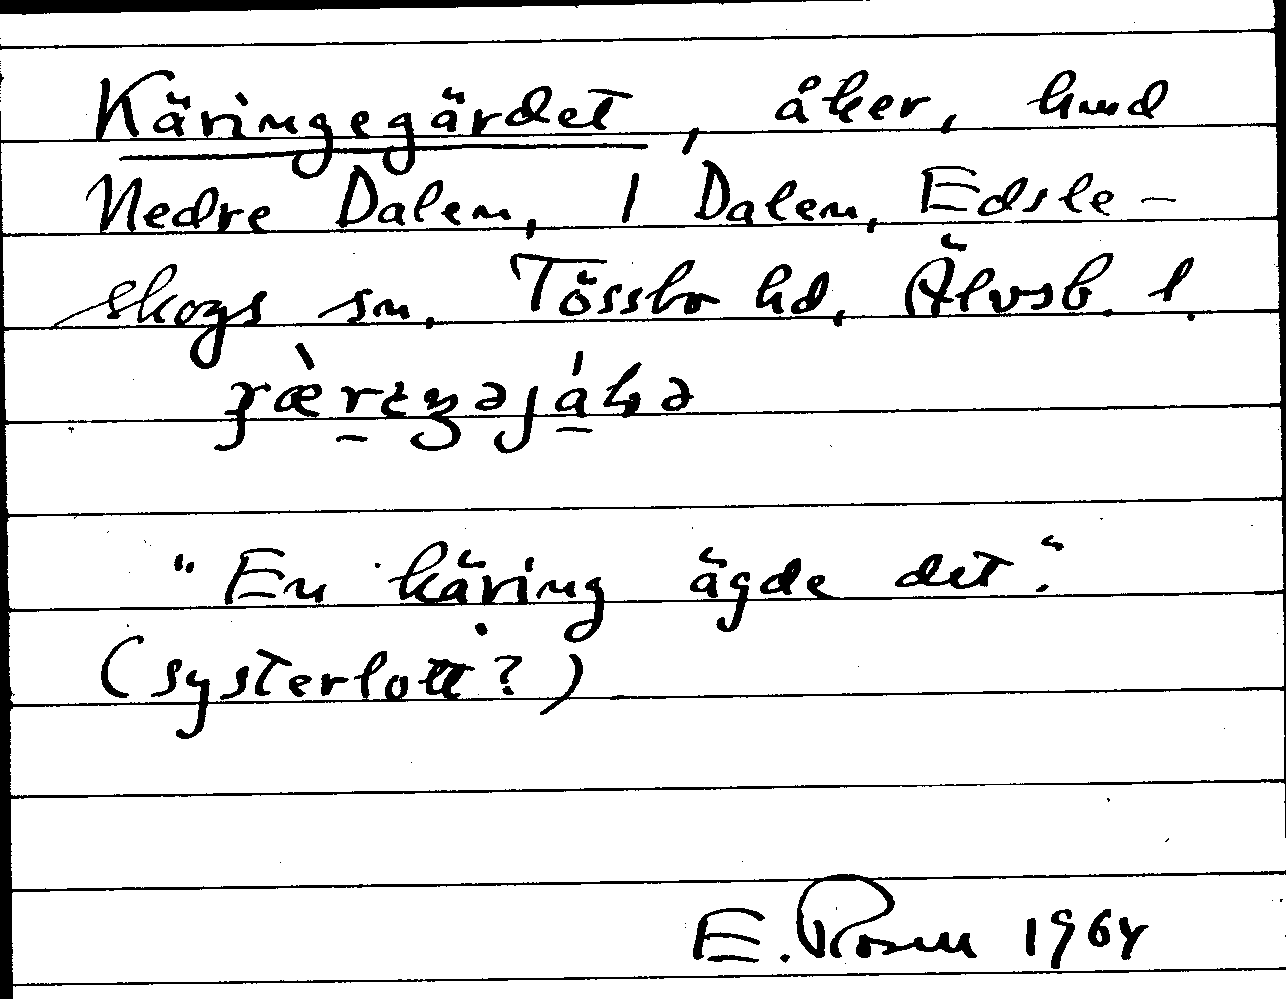 Käringegärdet, åker, hmd
Nedre Dalen, 1 Dalen, Edsle-
skogs sn, Tössbo hd, Älvsb. l.
"En käring ägde det."
(systerlott?)
E. Rosen 1964